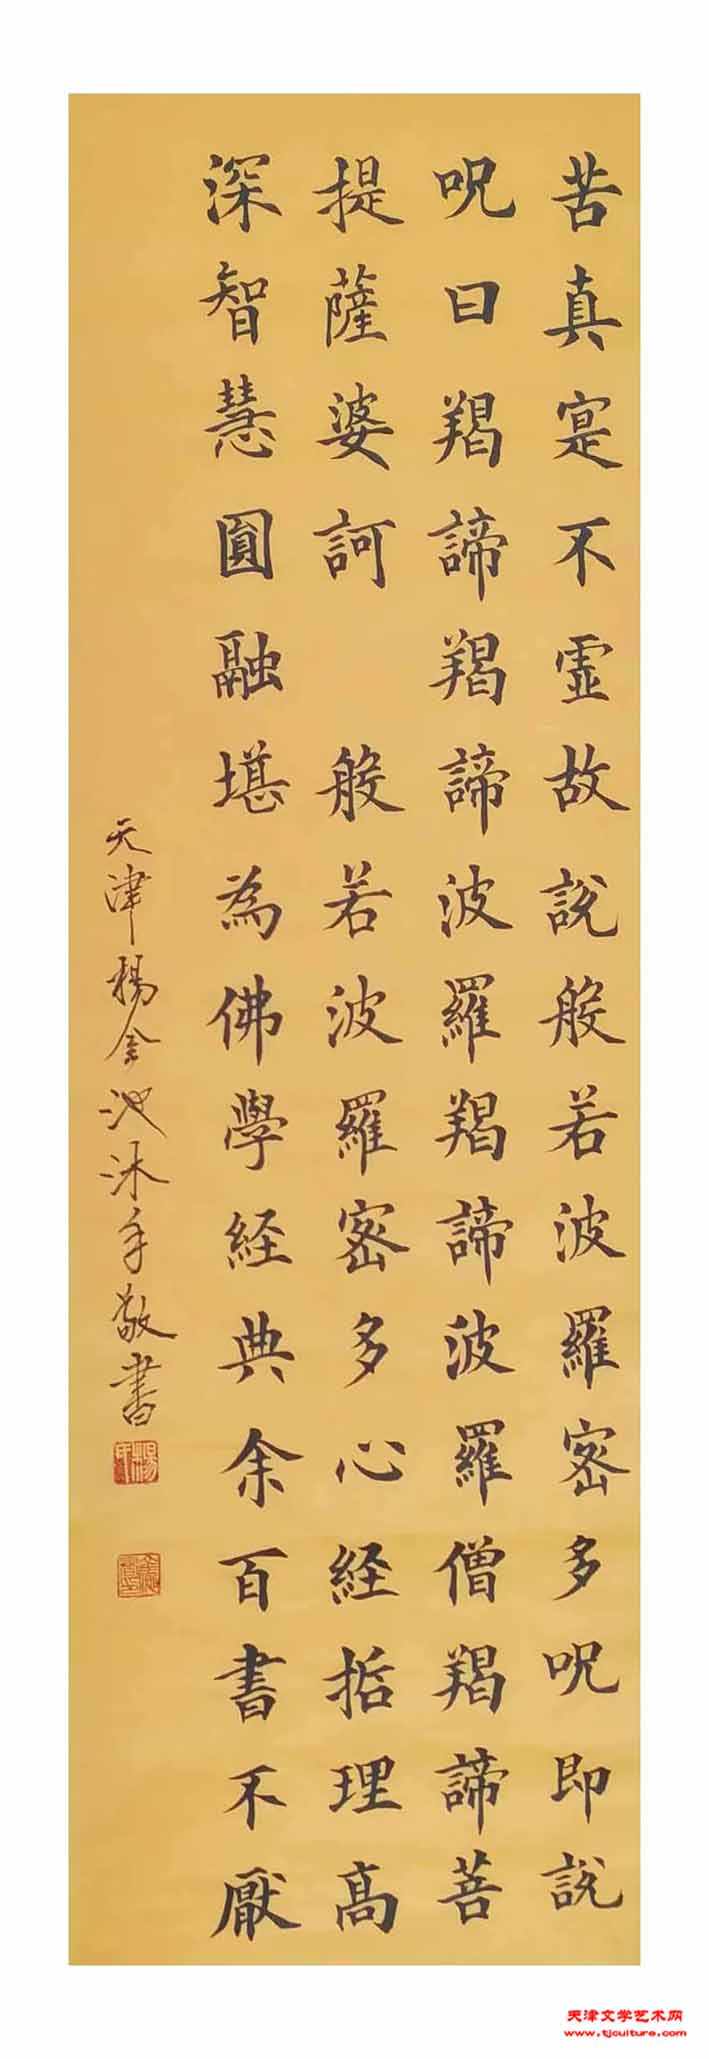 苦真寔不虛故説般若波羅密多呪即説
呪曰羯諦羯諦波羅羯諦波羅僧羯諦菩
提薩婆訶 般若波羅密多心経哲理高
深智慧圓融堪為佛學経典余百書不厭
天津楊金池沐手敬書
天津文学艺术网
www.tjculture.com